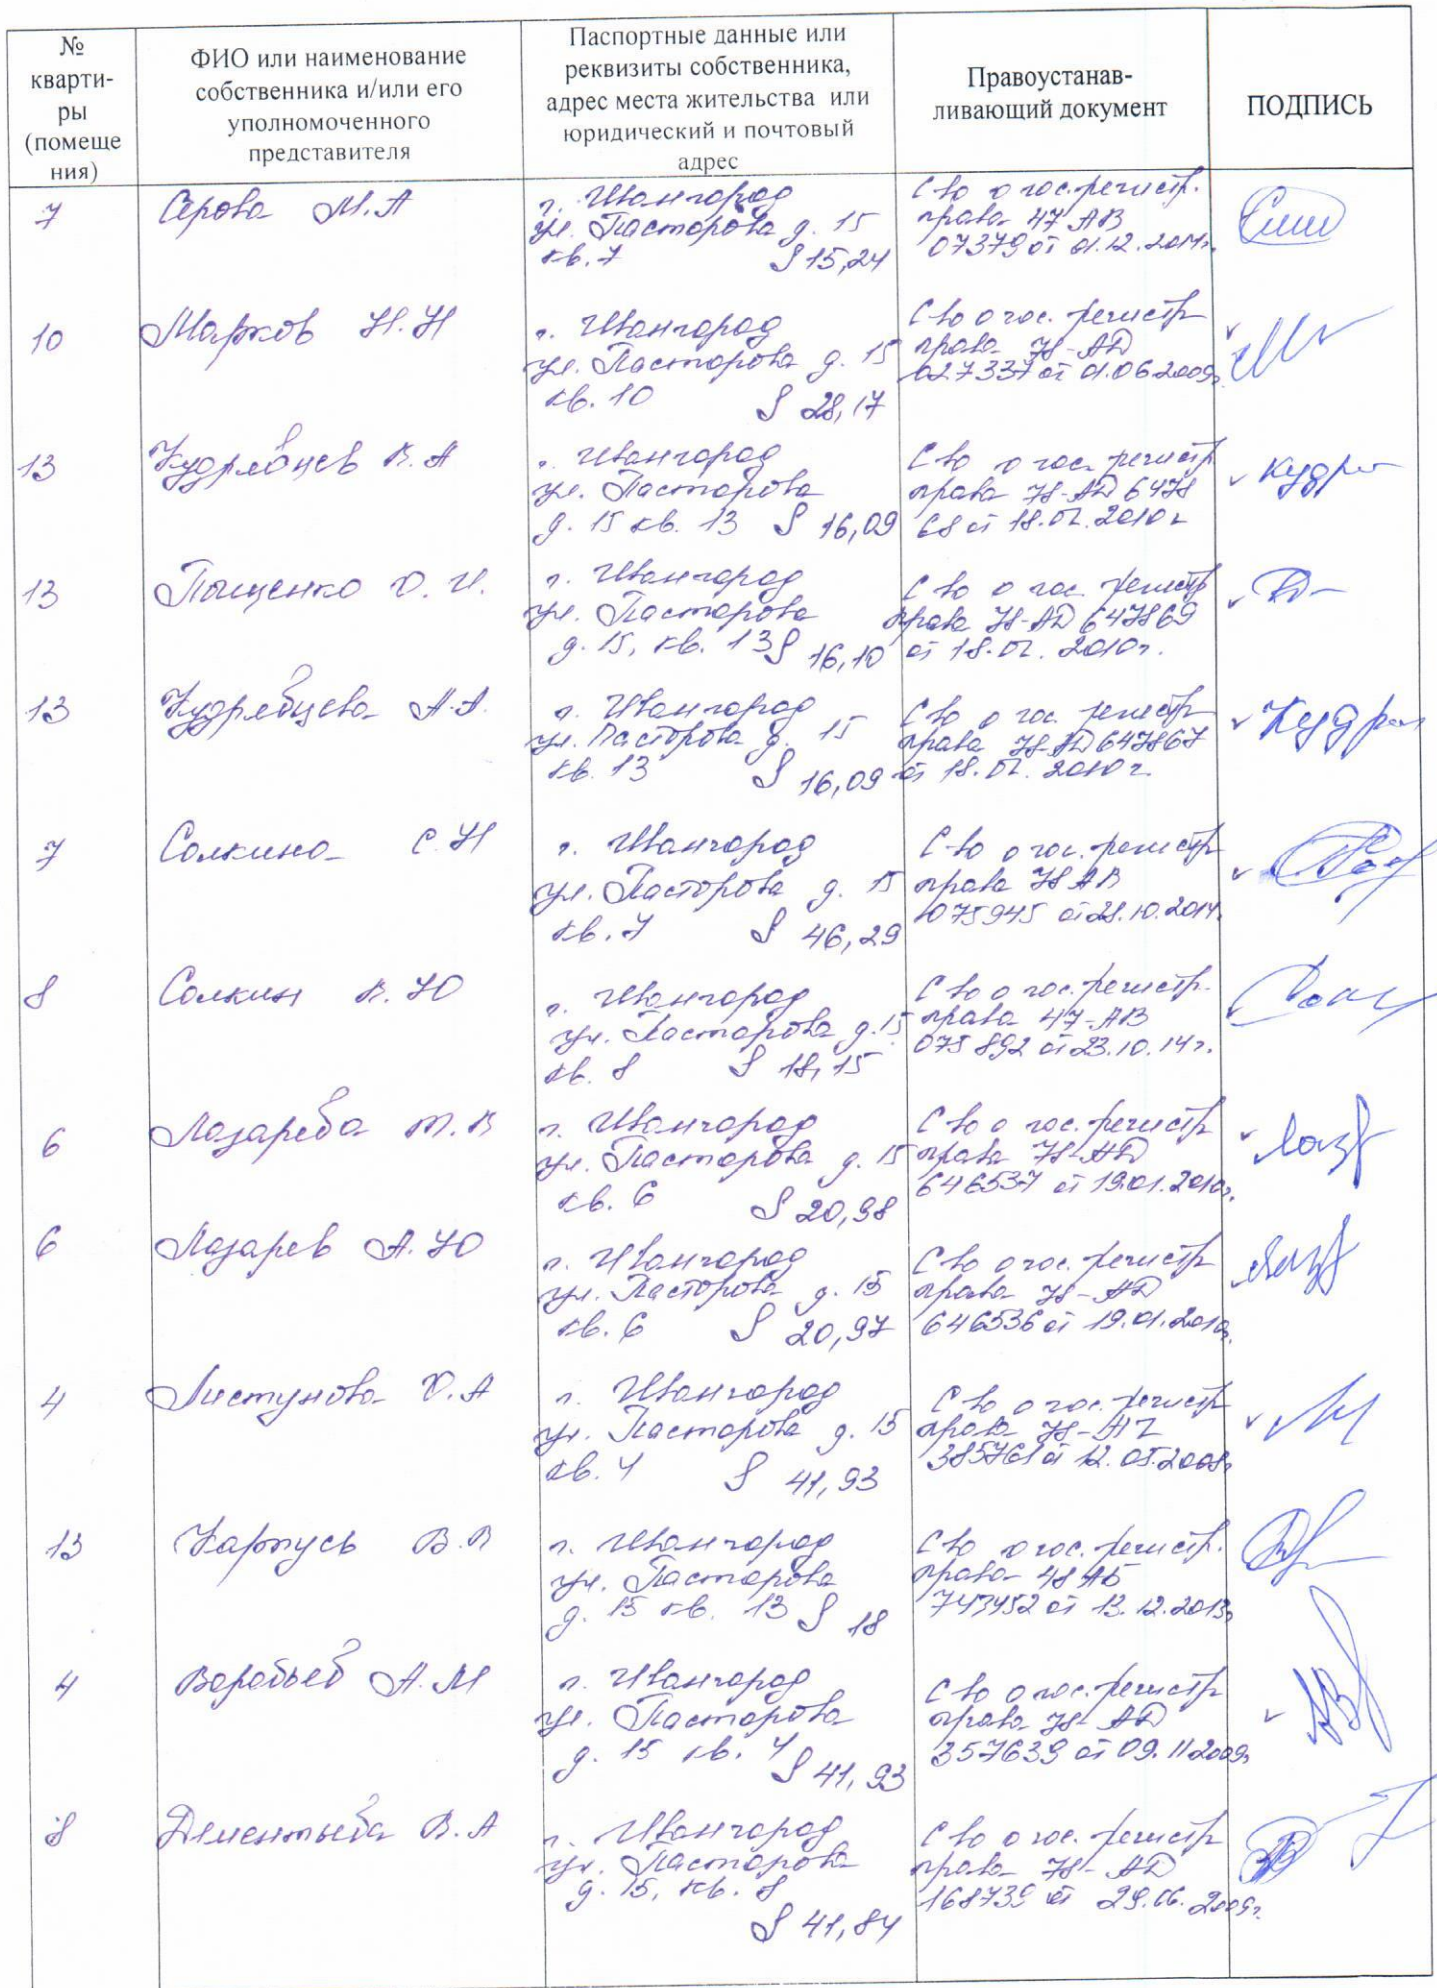 №
кварти-
ры
(помеще
ния)
ФИО или наименование
собственника и/или его
уполномоченного
представителя
Паспортные данные или
реквизиты собственника,
адрес места жительства или
юридический и почтовый
адрес
Правоустанав-
ливающий документ
ПОДПИСЬ
7
Серова М.А
г. Ивангород
ул. Пасторова д. 15
кв. 7 S 15,24
С-во о гос. регистр.
права 47 АВ
07379 от 01.12.2014г.
10
Марков Н.Н
г. Ивангород
ул. Пасторова д. 15
кв. 10 S 28,17
С-во о гос. регистр
права 78-АД
027337 от 01.06.2009г.
13
Кудрявцев В.А
г. Ивангород
ул. Пасторова
д. 15 кв. 13 S 16,09
С-во о гос. регистр
права 78-АД 6478
68 от 18.02.2010г
Кудря
13
О.И.
г. Ивангород
ул. Пасторова
д. 15, кв. 13 S 16,10
С-во о гос. регистр
права 78-АД 647869
от 18.02.2010г.
13
Кудрявцева А.А.
г. Ивангород
ул. Пасторова д. 15
кв. 13 S 16,09
С-во о гос. регистр
права 78-АД 647867
от 18.02.2010г.
7
Солкина С.Н
г. Ивангород
ул. Пасторова д. 15
кв. 7 S 46,29
С-во о гос. регистр
права 78 АВ
075945 от 28.10.2014г.
8
Солкин В.Ю
г. Ивангород
ул. Пасторова д. 15
кв. 8 S 18,15
С-во о гос. регистр.
права 47-АВ
075892 от 23.10.14г.
6
Лазарева Т.В
г. Ивангород
ул. Пасторова д. 15
кв. 6 S 20,98
С-во о гос. регистр
права 78-АД
646537 от 19.01.2010г.
6
Лазарев А.Ю
г. Ивангород
ул. Пасторова д. 15
кв. 6 S 20,97
С-во о гос. регистр
права 78-АД
646536 от 19.01.2010г.
4
Листунова О.А
г. Ивангород
ул. Пасторова д. 15
кв. 4 S 41,93
С-во о гос. регистр
права 78-АГ
385761 от 12.05.2008г
13
Карпусь В.В
г. Ивангород
ул. Пасторова
д. 15 кв. 13 S 18
С-во о гос. регистр.
права 48 АБ
743452 от 13.12.2013г
4
Воробьев А.М
г. Ивангород
ул. Пасторова
д. 15 кв. 4 S 41,93
С-во о гос. регистр
права 78-АД
357639 от 09.11.2009г
8
Дементьева В.А
г. Ивангород
ул. Пасторова
д. 15, кв. 8
S 41,84
С-во о гос. регистр
права 78-АД
168739 от 29.06.2009г.